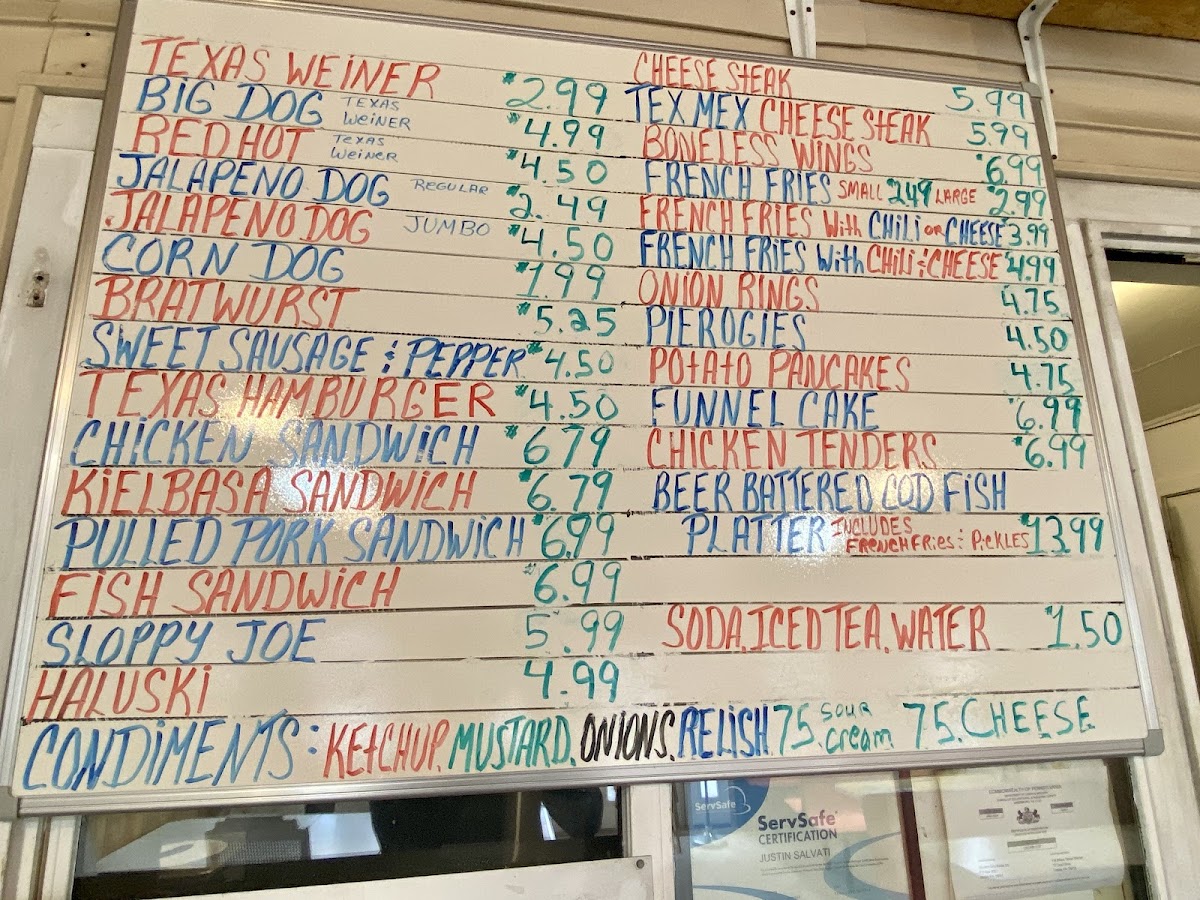 TEXAS WEINER $2.99
BIG DOG TEXAS WEINER $4.99
RED HOT TEXAS WEINER $4.50
JALAPENO DOG REGULAR $2.49
JALAPENO DOG JUMBO $4.50
CORN DOG $1.99
BRATWURST $5.25
SWEET SAUSAGE & PEPPER $4.50
TEXAS HAMBURGER $4.50
CHICKEN SANDWICH $6.79
KIELBASA SANDWICH $6.79
PULLED PORK SANDWICH $6.99
FISH SANDWICH $6.99
SLOPPY JOE 5.99
HALUSKI 4.99
CHEESE STEAK 5.99
TEX MEX CHEESE STEAK 5.99
BONELESS WINGS $6.99
FRENCH FRIES SMALL $2.49 LARGE $2.99
FRENCH FRIES With CHILI OR CHEESE 3.99
FRENCH FRIES With CHILI & CHEESE 4.99
ONION RINGS 4.75
PIEROGIES 4.50
POTATO PANCAKES 4.75
FUNNEL CAKE $6.99
CHICKEN TENDERS $6.99
BEER BATTERED COD FISH
PLATTER INCLUDES FRENCH FRIES & PICKLES $13.99
SODA, ICED TEA, WATER $1.50
CONDIMENTS: KETCHUP, MUSTARD, ONIONS, RELISH 75. SOUR CREAM 75. CHEESE
ServSafe
ServSafe®
CERTIFICATION
JUSTIN SALVATI